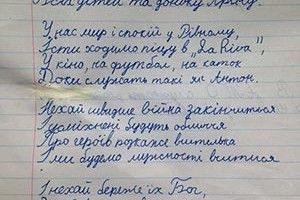 дітей та доньку Ярину.
У нас мир і спокій у Рівному,
Їсти ходимо піцу в „La Riva",
У кіно, на футбол, на каток
Доки служать такі як Антон.
Нехай швидше війна закінчиться
І усміхнені будуть обличчя
Про героїв розкаже вчителька
І ми будемо мужності вчитися
І нехай береже їх Бог,